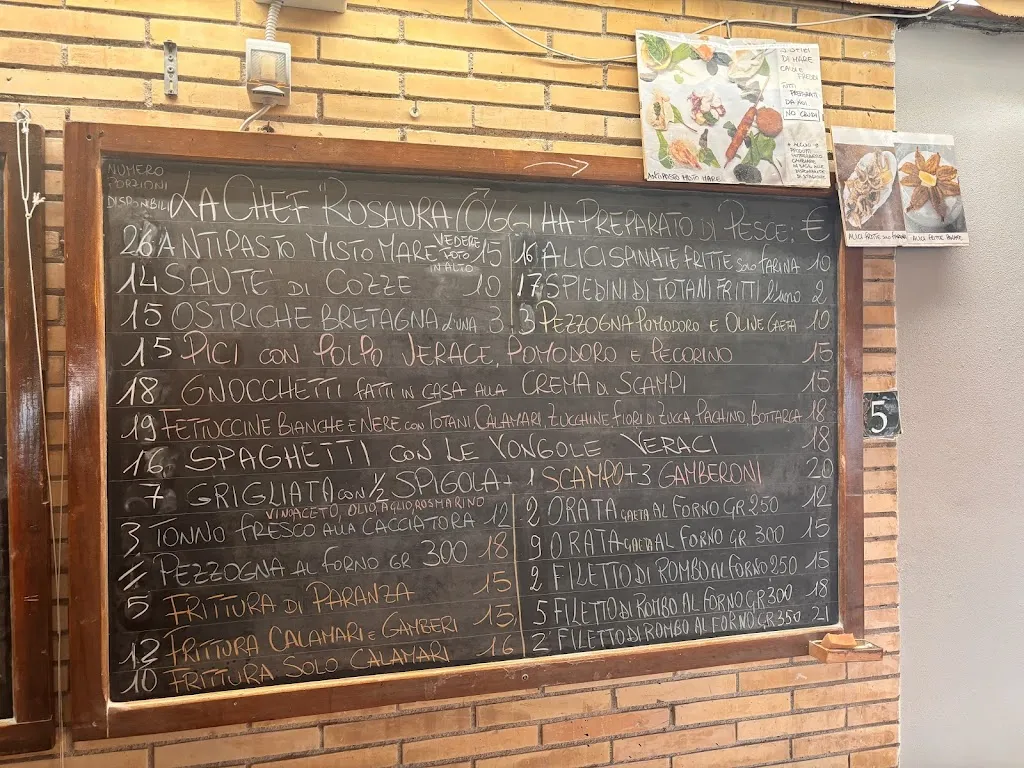 NUMERO
PORZIONI
DISPONIBILI
LA CHEF ROSAURA OGGI HA PREPARATO DI PESCE: €
26 ANTIPASTO MISTO MARE VEDERE FOTO IN ALTO 15
14 SAUTÈ DI COZZE 10
15 OSTRICHE BRETAGNA L'UNA 3
16 ALICI SPINATE FRITTE SOLO FARINA 10
17 SPIEDINI DI TOTANI FRITTI L'UNO 2
3 PEZZOGNA POMODORO E OLIVE GAETA 10
15 PICI CON POLPO VERACE, POMODORO E PECORINO 15
18 GNOCCHETTI FATTI IN CASA ALLA CREMA DI SCAMPI 15
19 FETTUCCINE BIANCHE E NERE CON TOTANI CALAMARI, ZUCCHINE FIORI DI ZUCCA, PACHINO, BOTTARGA 18
16 SPAGHETTI CON LE VONGOLE VERACI 18
7 GRIGLIATA CON 1/2 SPIGOLA + 1 SCAMPO + 3 GAMBERONI 20
VINO ACETO, OLIO AGLIO ROSMARINO
3 TONNO FRESCO ALLA CACCIATORA 12
PEZZOGNA AL FORNO GR 300 18
5 FRITTURA DI PARANZA 15
12 FRITTURA CALAMARI E GAMBERI 15
10 FRITTURA SOLO CALAMARI 16
2 ORATA GAETA AL FORNO GR 250 12
9 ORATA GAETA AL FORNO GR 300 15
2 FILETTO DI ROMBO AL FORNO 250 15
5 FILETTO DI ROMBO AL FORNO GR 300 18
2 FILETTO DI ROMBO AL FORNO GR 350 21
DI MARE
CALDI E FREDDI
TUTTI
PREPARATI
DA NOI
NO CONGELATI
PRODOTTI
ANTIPASTO MISTO MARE
ALICI FRITTE SOLO FARINA
ALICI FRITTE PANATE
5